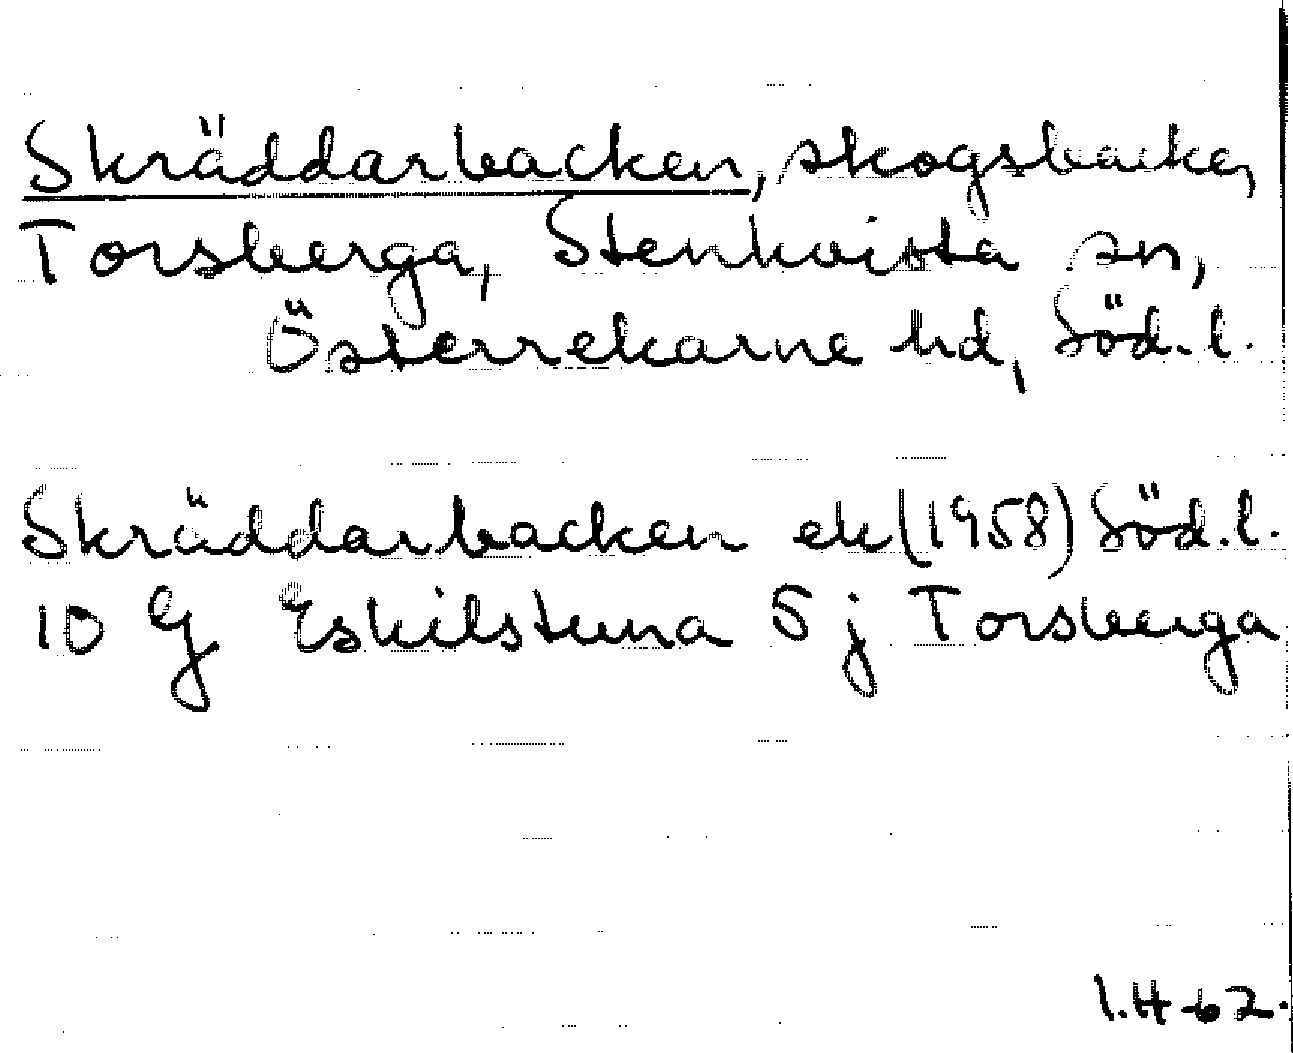 Skräddarbacken, skogsbacke,
Torsberga, Stenkvista sn,
Österrekarne hd, Söd. l.
Skräddarbacken ek (1958) Söd. l.
10 G Eskilstuna 5 j Torsberga
I.H-62.